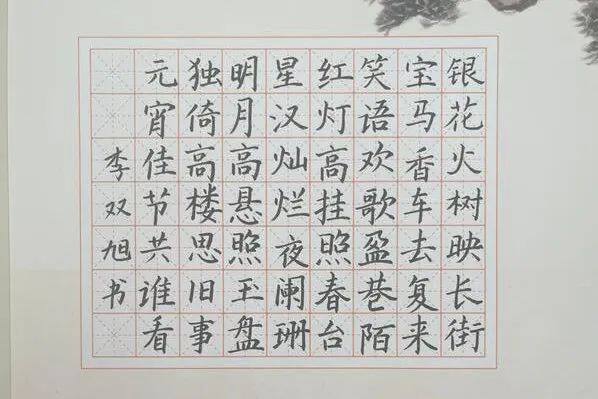 银花火树映长街
宝马香车去复来
笑语欢歌盈巷陌
红灯高挂照春台
星汉灿烂夜阑珊
明月高悬照玉盘
独倚高楼思旧事
元宵佳节共谁看
李双旭书